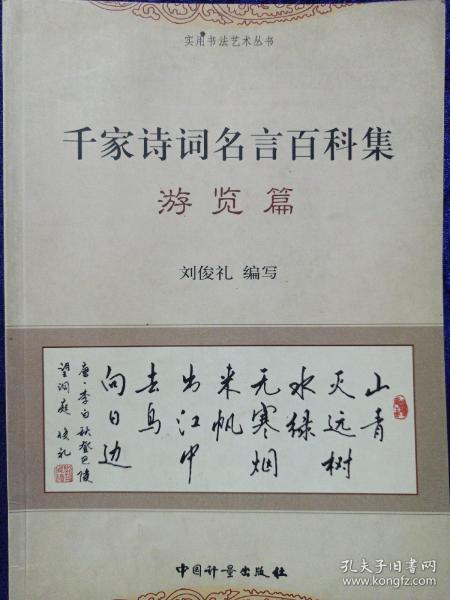 实用书法艺术丛书
千家诗词名言百科集
游览篇
刘俊礼 编写
山青
灭远树
水绿
无寒烟
来帆
出江中
去鸟
向日边
唐·李白秋登巴陵
望洞庭 俊礼
中国计量出版社
孔夫子旧书网
www.kongfz.com